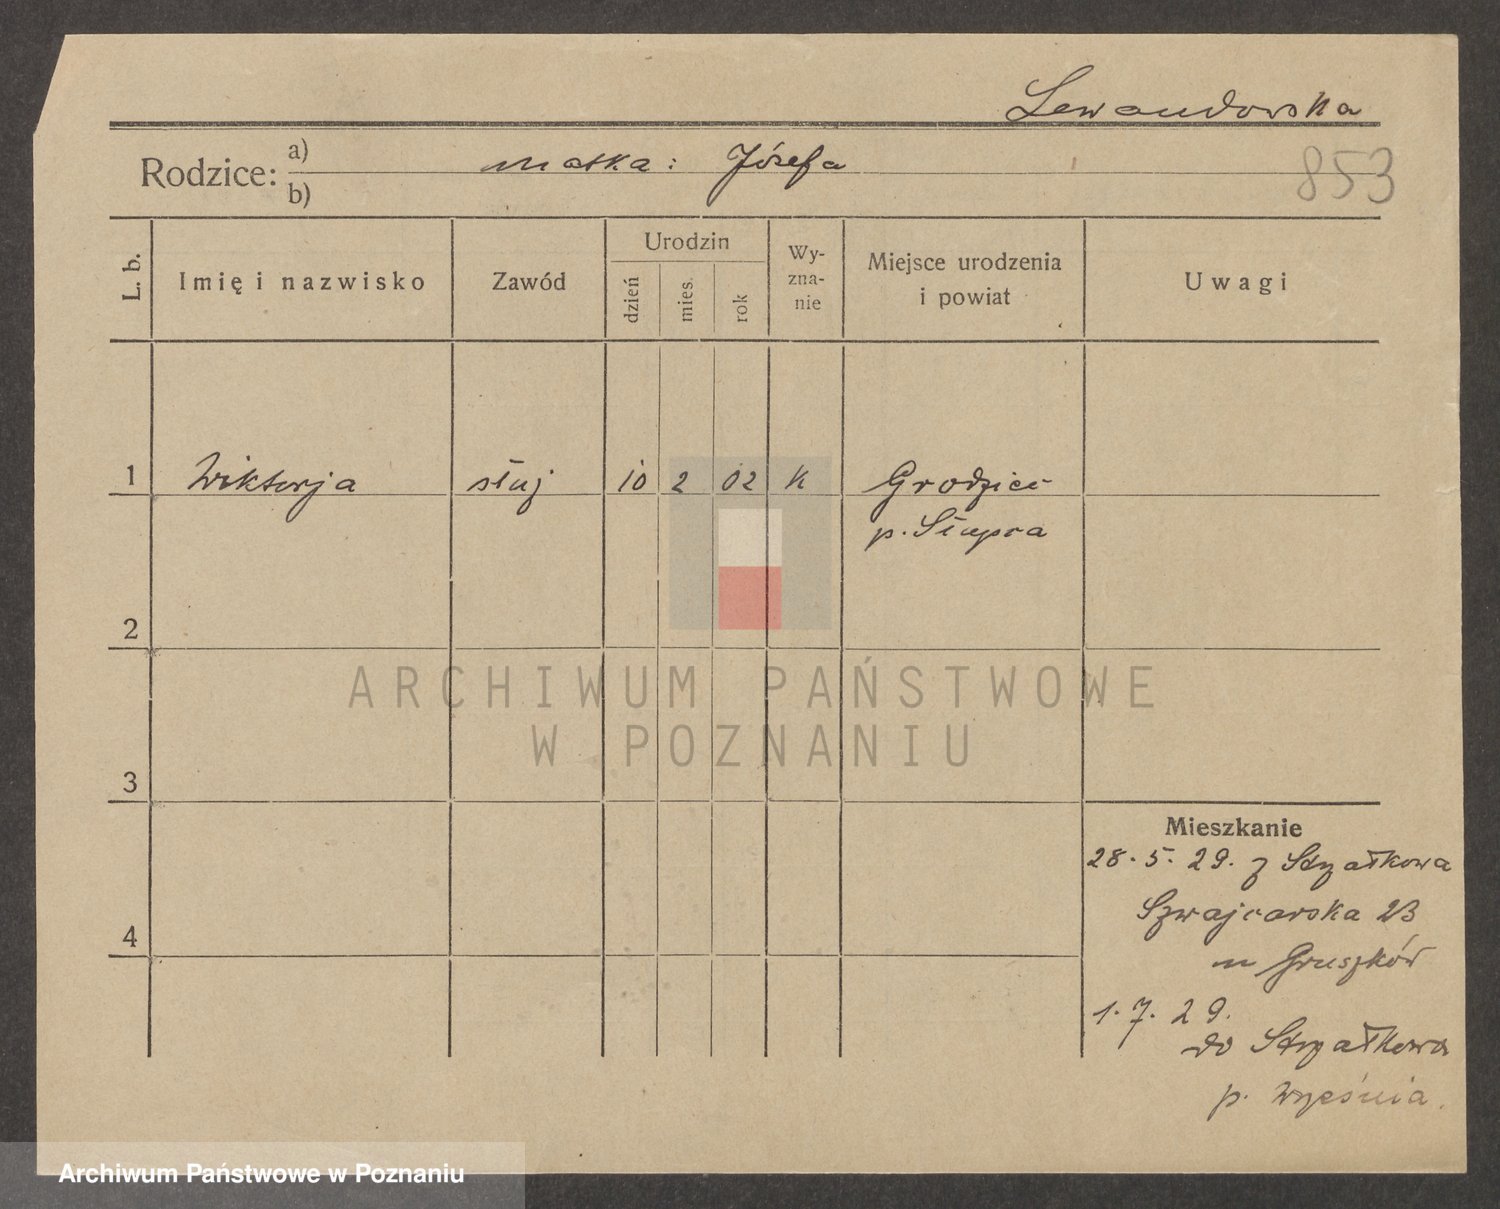 Lewandowska
Rodzice: a) matka: Józefa
b)
853
L. b.
Imię i nazwisko
Zawód
Urodzin
dzień
mies.
rok
Wy-
zna-
nie
Miejsce urodzenia
i powiat
Uwagi
1 Wiktorja służ 10 2 02 K Grodziec
p. Słupca
2
ARCHIWUM PAŃSTWOWE
W POZNANIU
3
Mieszkanie
28. 5. 29. z Strzałkowa
Szwajcarska 23
4
m Gruszków
1. 7. 29.
do Strzałkowa
p. Września.
Archiwum Państwowe w Poznaniu